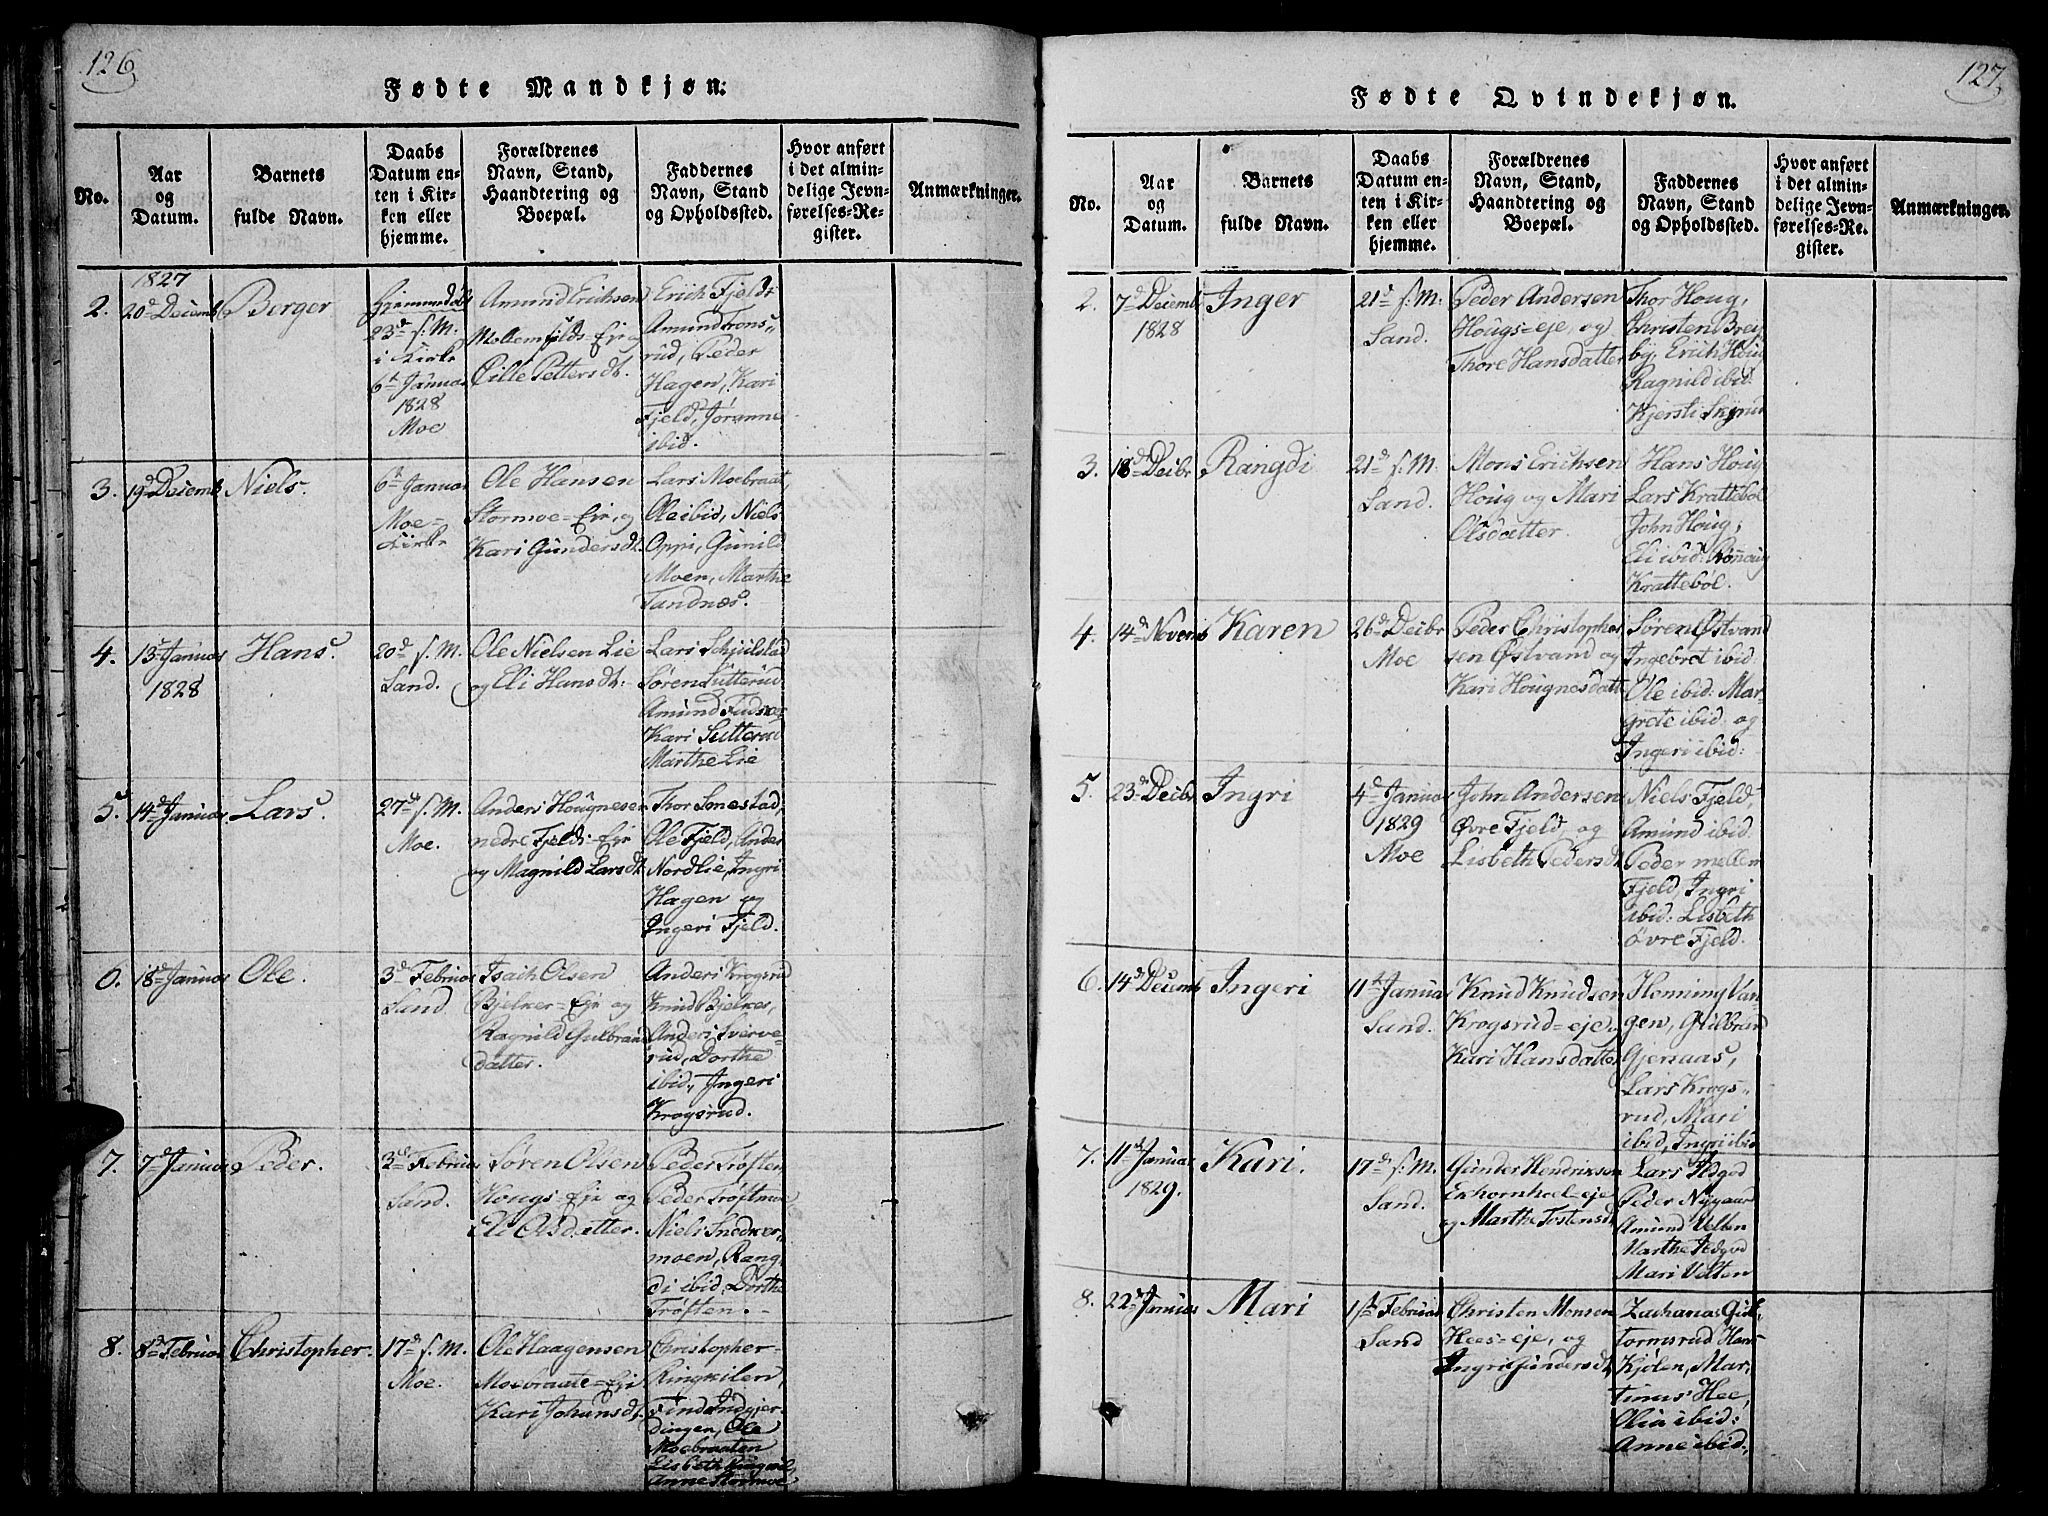 126
Fødte Mandkjøn:
No.
Aar
og
Datum.
Barnets
fulde Navn.
Daabs
Datum en-
ten i Kir-
ken eller
hjemme.
Forældrenes
Navn, Stand,
Haandtering og
Boepæl.
Faddernes
Navn, Stand
og Opholdssted.
Hvor anført
i det almin-
delige Jevn-
førelses-Re-
gister.
Anmærkninger.
1827
2.
20d Decemb
Berger
hjemmedøbt
23d s: M.
i Kirke
6t Januar
1828
Moe
Amund Erichsen
Mellemfields-Eje og
Cille Pettersdt.
Erich Fjeld
Amund Frons-
rud, Peder
Hagen, Kari
Fjeld, Joranne
ibid.
3.
19d Decemb
Niels.
6t Januar
Moe-
Kirke
Ole Hansen
Stormoe-Eje, og
Kari Gundersdt.
Lars Moebraat,
Ole ibid, Niels
Oppi, Gunild
Moen, Marthe
Sandnes.
4.
13d Januar
1828
Hans.
20d s. M.
Sand.
Ole Nielsen Lie
og Eli Hansdt.
Lars
Søren Sutterud
Amund
Kari Sutterud
Marthe Lie
5.
14d Januar
Lars.
27d s. M.
Moe.
Anders Hougnesen
nedre Fjelds-Eje
og Magnild Larsdt.
Thor Sonestad,
Ole Fjeld, Anders
Nordlie, Ingri
Hagen og
Ingeri Fjeld.
6.
18d Januar
Ole.
3d Februar
Sand
Isach Olsen
Bjelker-Eje og
Ragnild Gulbrands
datter.
Anders Krogsrud
Knud Bjelkes,
Anders Sverve-
rud, Dorthe
ibid, Ingeri
Krogsrud.
7.
7d Januar
Peder.
3d Februar
Sand.
Søren Olsen
Hougs-Eje og
Eli Olsdatter.
Peder Trøften
Peder Trøftmoe
Niels Snedker-
moen, Rang-
di ibid, Dorthe
Trøften.
8.
8d Februar
Christopher.
17d s. M.
Moe.
Ole Haagensen
Moebraate-Eje
Kari Johansdt.
Christopher
Ringkilen,
Find Indgjer-
dingen, Ole
Moebraaten
Lisbeth Ringkil,
Anne Stormoe
127
Fødte Qvindekjøn.
No.
Aar
og
Datum.
Barnets
fulde Navn.
Daabs
Datum en-
ten i Kir-
ken eller
hjemme.
Forældrenes
Navn, Stand,
Haandtering og
Boepæl.
Faddernes
Navn, Stand
og Opholdssted.
Hvor anført
i det almin-
delige Jevn-
førelses-Re-
gister.
Anmærkninger.
2.
7d Decemb
1828
Inger
21d s: M.
Sand.
Peder Andersen
Hougs-eje, og
Thore Hansdatter
Thor Houg,
Christen Brei
by, Erich Houg
Ragnild ibid.
Kjersti
3.
18d Decbr
Rangdi
21d s: M.
Sand.
Mons Erichsen
Houg og Mari
Olsdatter.
Hans Houg
Lars Krattebøl
John Houg,
Eli ibid: Rønnaug
Krattebøl.
4.
14d Novemb
Karen
26d Decbr
Moe
Peder Christopher
sen Østvand og
Kari Hougnesdatt
Søren Østvand
Ingebret ibid.
Ole ibid: Mar-
grete ibid: og
Ingeri ibid:
5.
23d Decbr
Ingri
4d Januar
1829
Moe
John Andersen
Øvre Fjeld, og
Lisbeth Pedersdt
Niels Fjeld,
Amund ibid.
Peder mellem
Fjeld, Ingri
ibid: Lisbeth
øvre Fjeld.
6.
14d Decemb
Ingeri
11t Januar
Sand.
Knud Knudsen
Krogsrud-eje,
Kari Hansdatter
Henning Van-
gen, Gulbrand
Gjersaas,
Lars Krogs-
rud, Mari
ibid, Ingri ibid
7.
11d Januar
1829.
Kari.
17d s: M.
Sand.
Gunder Hendriksen
Exhornhoel-eje
og Marthe Tostensdt
Lars
Peder Nygaar
Amund Velten
Marthe
Mari Velten
8.
22d Januar
Mari
1st Februar
Sand
Christen Monsen
Hees-eje, og
Ingri Gundersdt
Zacharias Gut-
tormsrud Hans
Kjølen, Mar-
tinus Hee,
Olia ibid:
Anne ibid.